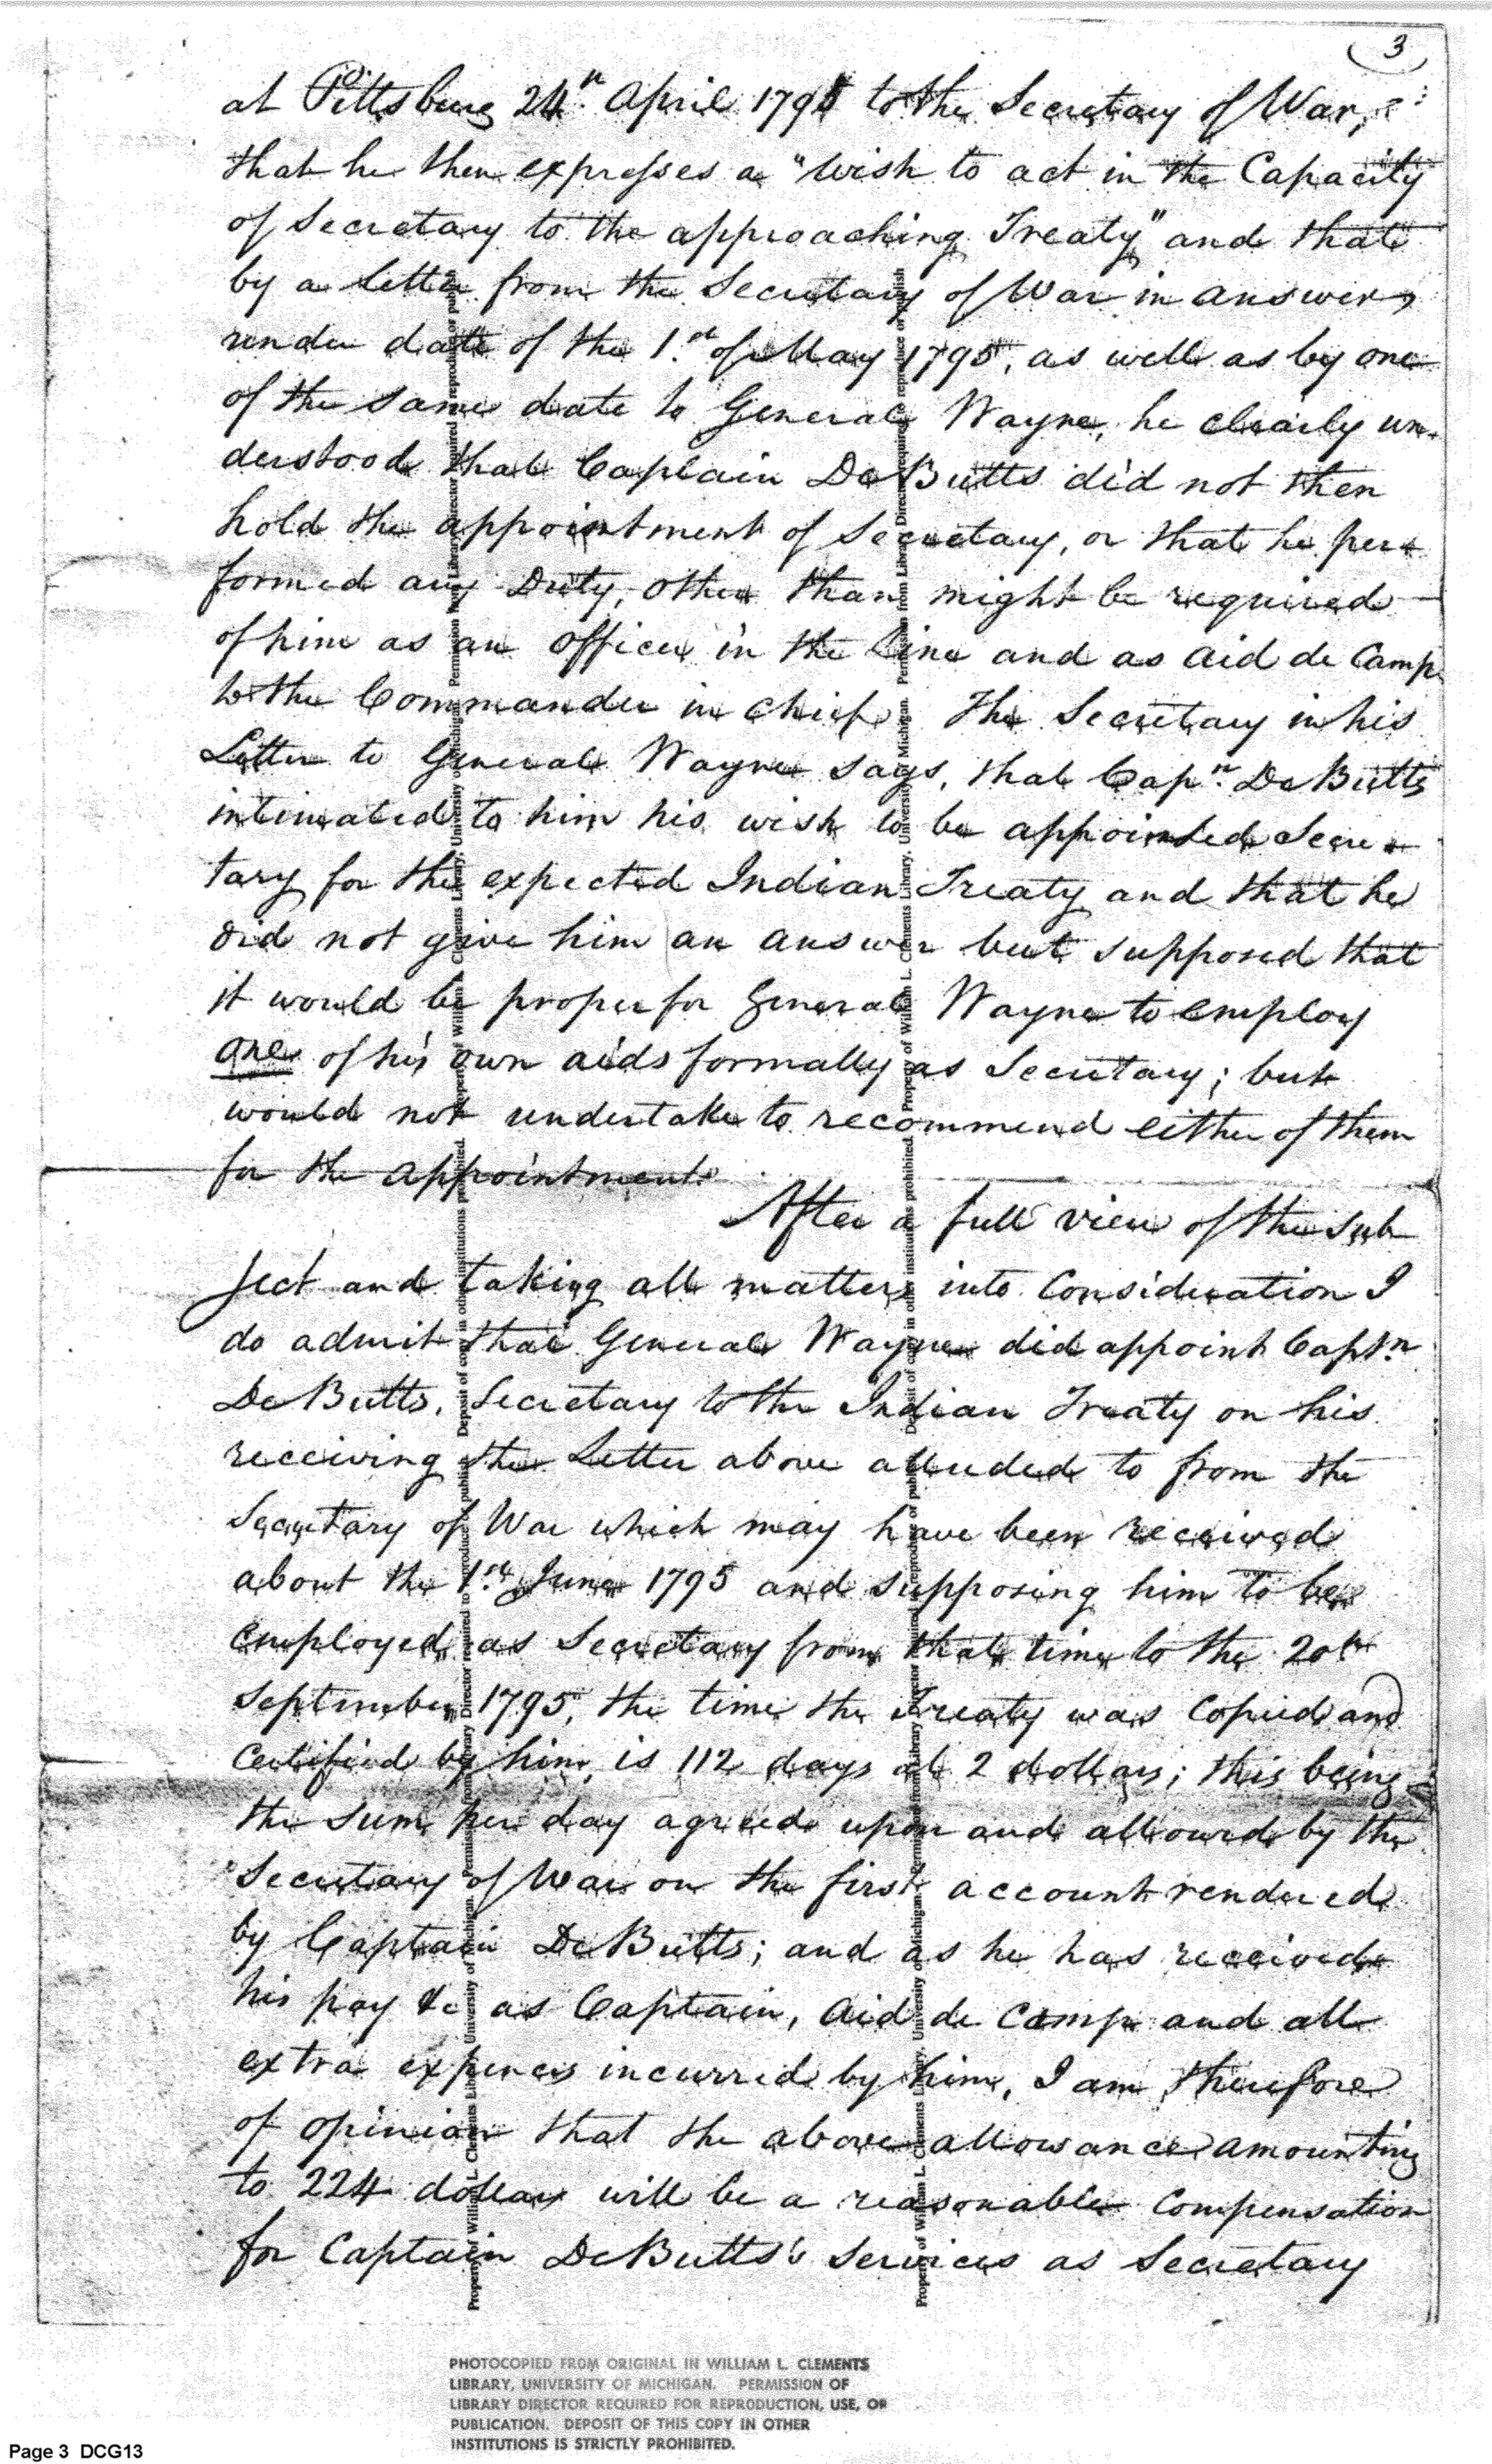 3
at Pittsburg 24th. April 1795 to the Secretary of War,
that he then expresses a "wish to act in the Capacity
of Secretary to the approaching Treaty" and that
by a letter from the Secretary of War in answer,
under date of the 1.st of May 1795, as well as by one
of the same date to General Wayne, he clearly un-
derstood that Captain DeButts did not then
hold the appointment of Secretary, or that he per-
formed any Duty, other than might be required
of him as an officer in the line and as aid de Camp
to the Commander in chief. The Secretary in his
Letter to General Wayne says, that Capn. DeButts
intimated to him his wish to be appointed Secre-
tary for the expected Indian Treaty and that he
did not give him an answer but supposed that
it would be proper for General Wayne to employ
one of his own aids formally as Secretary; but
would not undertake to recommend either of them
for the appointment.
After a full view of the sub
ject and taking all matters into Consideration I
do admit that General Wayne did appoint Captn.
DeButts, Secretary to the Indian Treaty on his
receiving the Letter above alluded to from the
Secretary of War which may have been received
about the 1.st June 1795 and supposing him to be
employed as Secretary from that time to the 20th
September 1795, the time the Treaty was Copied and
Certified by him, is 112 days at 2 dollars; this being
the sum per day agreed upon and allowed by the
Secretary of War on the first account rendered
by Captain DeButts; and as he has received
his pay &c as Captain, Aid de Camp and all
extra expences incurred by him, I am therefore
of opinion that the above allowance amounting
to 224 dollars will be a reasonable Compensation
for Captain DeButts's services as Secretary
Property of William L. Clements Library, University of Michigan. Permission from Library Director required to reproduce or publish. Deposit of copy in other institutions prohibited.
PHOTOCOPIED FROM ORIGINAL IN WILLIAM L. CLEMENTS
LIBRARY, UNIVERSITY OF MICHIGAN. PERMISSION OF
LIBRARY DIRECTOR REQUIRED FOR REPRODUCTION, USE, OR
PUBLICATION. DEPOSIT OF THIS COPY IN OTHER
INSTITUTIONS IS STRICTLY PROHIBITED.
Page 3 DCG13